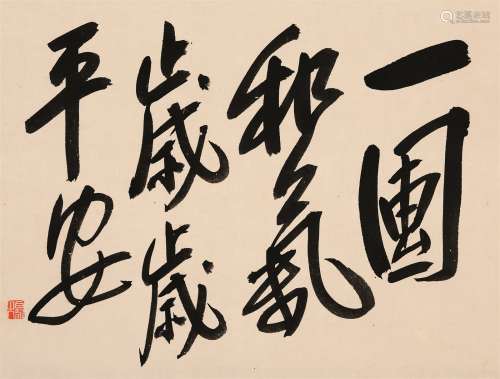 一團
和氣
歲歲
平安